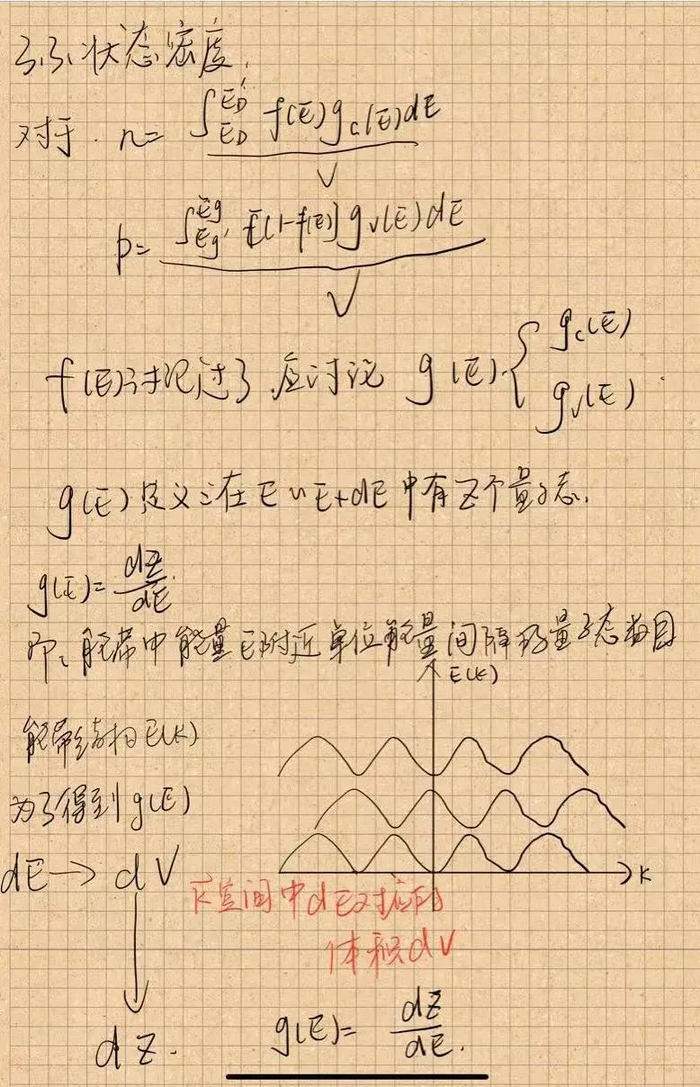 3.3、状态密度.
对于. n= ∫_{E_D}^{E_D'} f(E) g_c(E) dE
p= ∫_{Eg'}^{Eg} [1-f(E)] g_v(E) dE
f(E)讨论过了 应讨论 g(E). { g_c(E)
g_v(E).
g(E)定义:在E~E+dE中有Z个量子态.
g(E)= dZ/dE.
即:能带中能量E附近单位能量间隔的量子态数目
E(K)
能带结构E(K)
为了得到g(E)
dE→ dV
K
K空间中dE对应的
体积dV
dZ.
g(E)= dZ/dE.